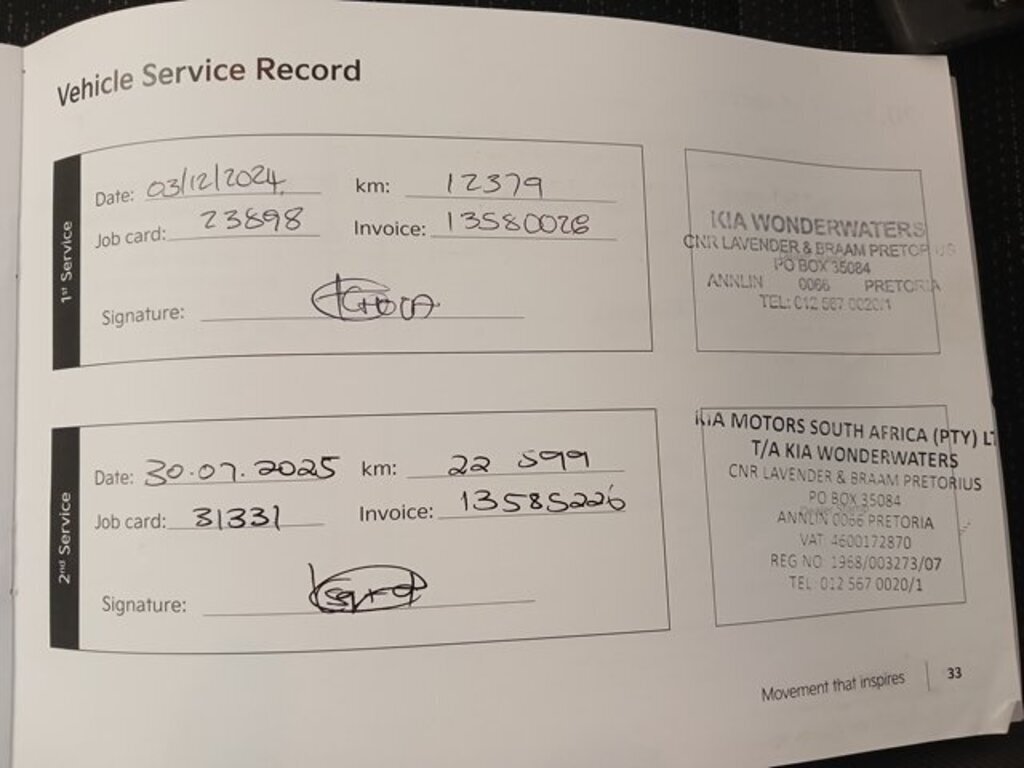 Vehicle Service Record
1st Service
Date: 03/12/2024 km: 12379
Job card: 23898 Invoice: 13580026
Signature:
KIA WONDERWATERS
CNR LAVENDER & BRAAM PRETORIUS
PO BOX 35084
ANNLIN 0066 PRETORIA
TEL: 012 567 0020/1
2nd Service
Date: 30.07.2025 km: 22 599
Job card: 31331 Invoice: 13585226
Signature:
KIA MOTORS SOUTH AFRICA (PTY) LT
T/A KIA WONDERWATERS
CNR LAVENDER & BRAAM PRETORIUS
PO BOX 35084
ANNLIN 0066 PRETORIA
VAT: 4600172870
REG NO: 1968/003273/07
TEL: 012 567 0020/1
Movement that inspires 33